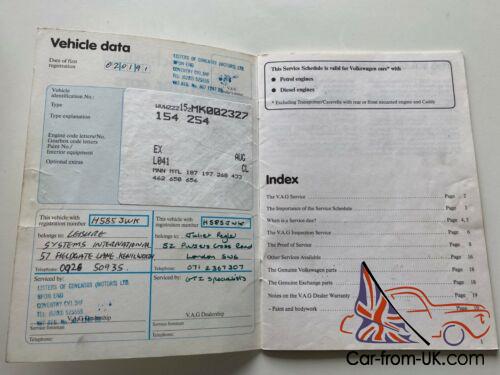 Vehicle data
Date of first
registration
02/01/91
LISTERS OF COVENTRY (MOTORS) LTD
V.A.G
Vehicle
identification No.:
WVWZZZ15ZMK002327
Type
154 254
Type explanation
Engine code letters/No.
Gearbox code letters
Paint No./
Interior equipment
Optional extras
EX AUG
L041 CL
MNN MTL 187 197 268 433
462 650 656
This vehicle with
registration number
H585JWK
belongs to:
LEISURE
SYSTEMS INTERNATIONAL
57 FIELDGATE LANE KENILWORTH
Telephone:
50935.
Serviced by:
LISTERS OF COVENTRY (MOTORS) LTD
V.A.G Dealership
Service foreman
Telephone:
This vehicle with
registration number
H585JWK
belongs to:
Juliet
Road
London SW6
Telephone:
071 2367307
Serviced by:
GTI Specialists
V.A.G Dealership
Service foreman
Telephone:
This Service Schedule is valid for Volkswagen cars* with
● Petrol engines
● Diesel engines
* Excluding Transporter/Caravelle with rear or front mounted engine and Caddy
Index
The V.A.G Service Page 2
The Importance of the Service Schedule Page 3
When is a Service due? Page 4, 5
The V.A.G Inspection Service Page 6
The Proof of Service Page 8
Other Services Available Page 16
The Genuine Volkswagen parts Page 18
The Genuine Exchange parts Page 18
Notes on the V.A.G Dealer Warranty Page 19
– Paint and bodywork Page
Car-from-UK.com